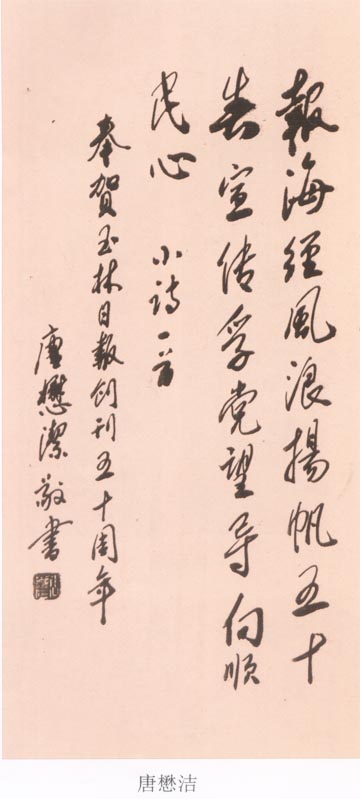 報海經風浪揚帆五十
春宣传孚党望导向順
民心 小诗一首
奉賀玉林日報创刊五十周年
唐懋潔敬書
唐懋洁